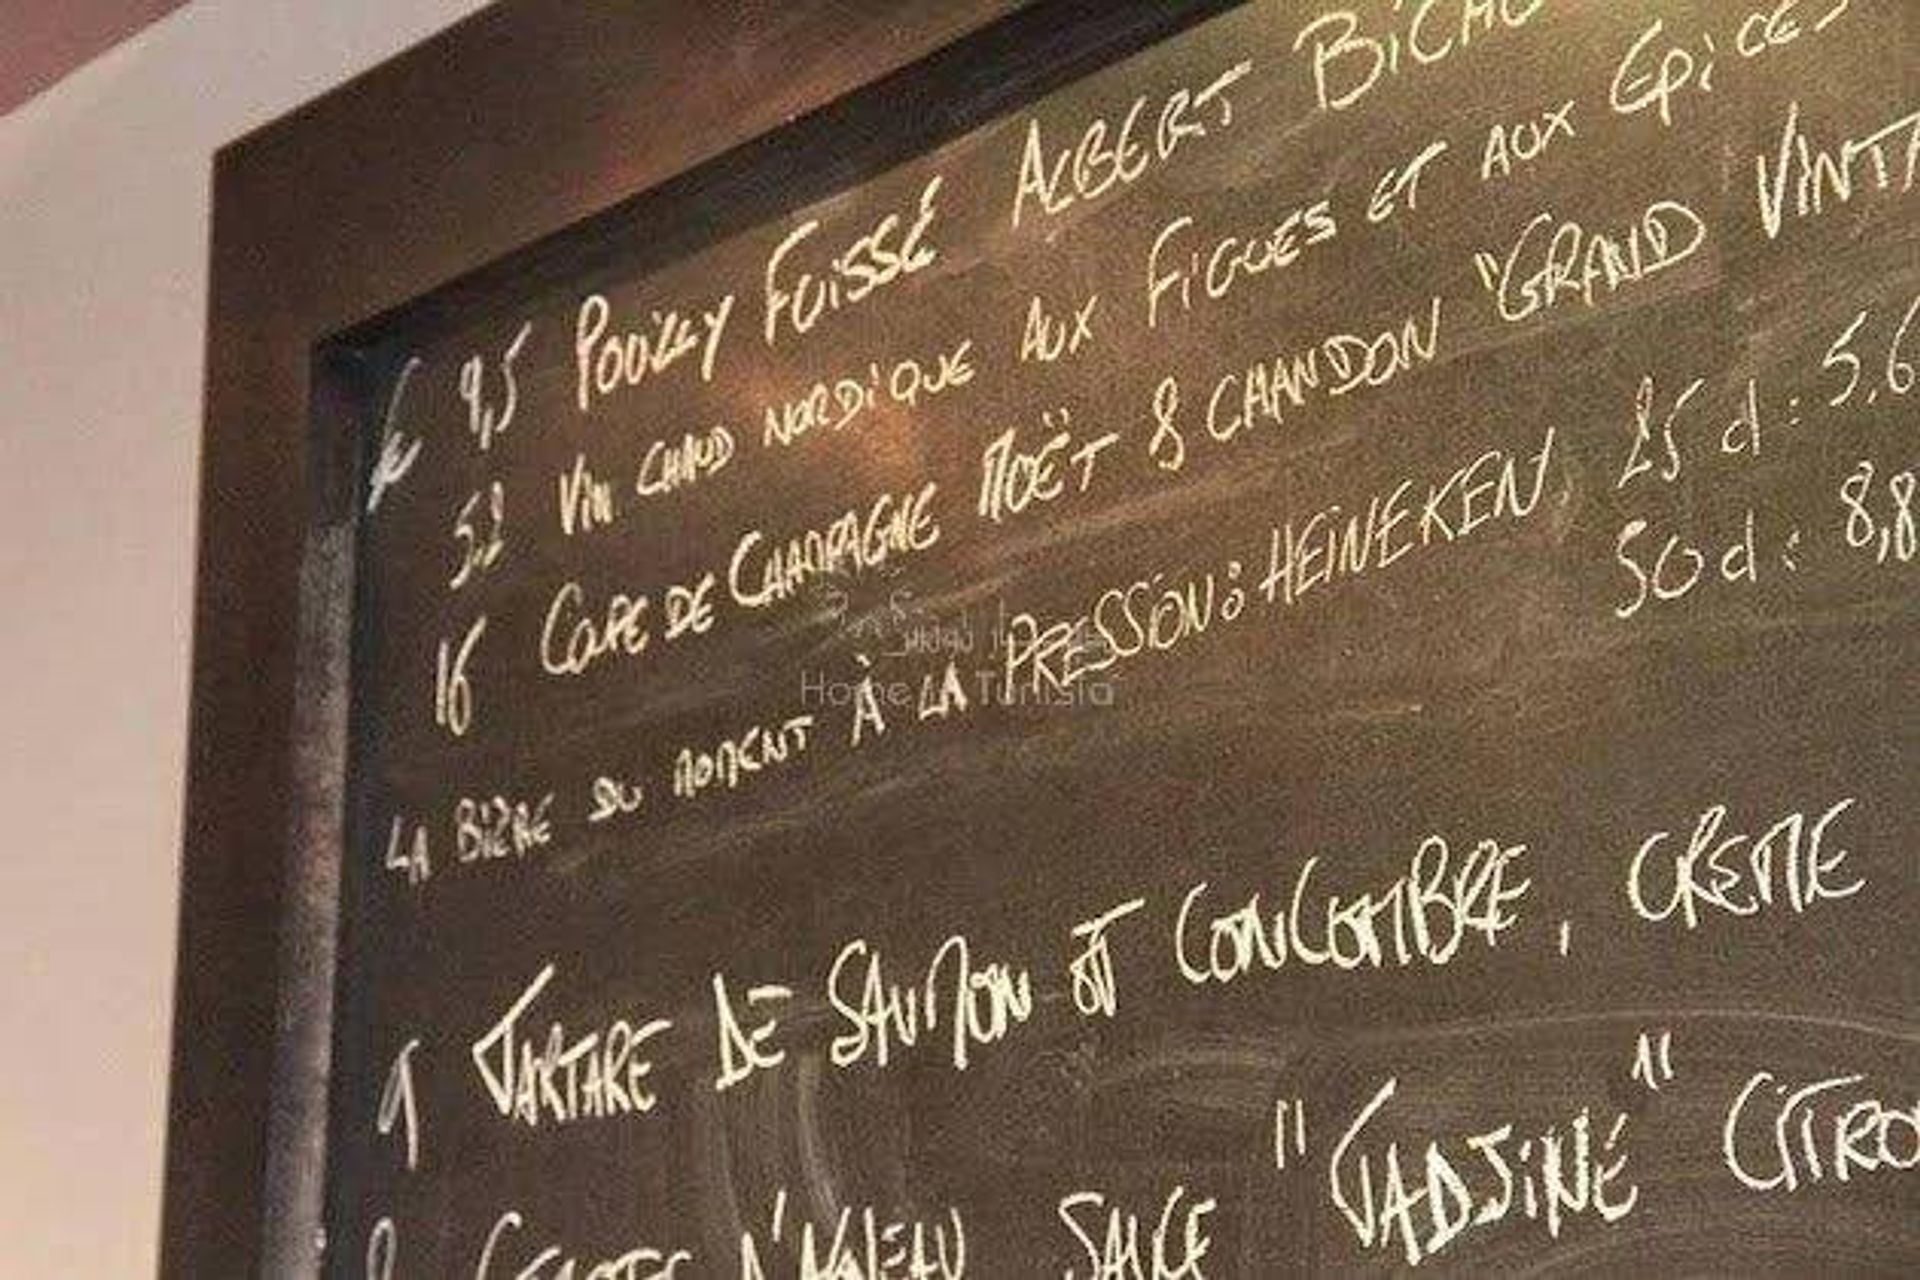 € 9,5 POUILLY FUISSÉ ALBERT BICHO
5,2 VIN CHAUD NORDIQUE AUX FIGUES ET AUX EPICES
16 COUPE DE CHAMPAGNE MOËT & CHANDON "GRAND VINTA
LA BIÈRE DU MOMENT À LA PRESSION: HEINEKEN, 25 d: 5,6
50 d: 8,8
Home in Tunisia
1 TARTARE DE SAUMON ET CONCOMBRE, CREME
D'AGNEAU SAUCE "TADJINE" CITRO